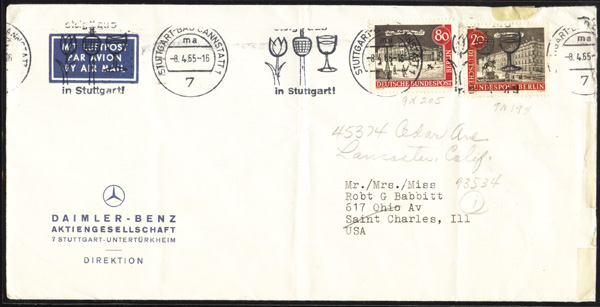 MIT LUFTPOST
PAR AVION
BY AIR MAIL
STUTTGART-BAD CANNSTATT 1
ma
-8.4.65-16
7
in Stuttgart!
STUTTGART-BAD
-8.4.65-16
80
DEUTSCHE BUNDESPOST BERLIN
20
DEUTSCHE BUNDESPOST BERLIN
45374 Cedar Ave
Lancaster, Calif.
93534
Mr./Mrs./Miss
Robt G Babbitt
617 Ohio Av
Saint Charles, Ill
USA
1
DAIMLER-BENZ
AKTIENGESELLSCHAFT
7 STUTTGART-UNTERTÜRKHEIM
DIREKTION